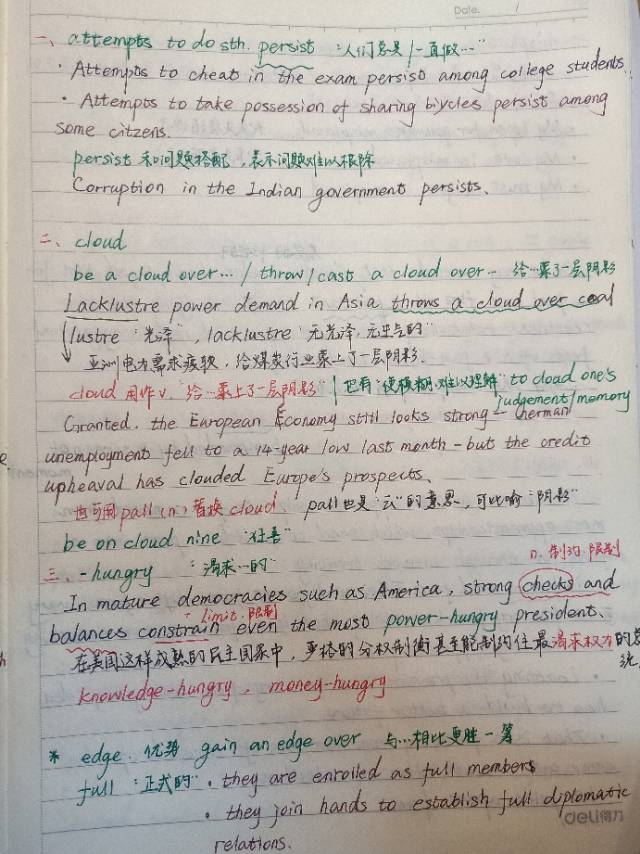 Date. /
一、attempts to do sth. persist "人们总是/一直做…"
· Attempts to cheat in the exam persist among college students.
· Attempts to take possession of sharing biycles persist among
some citzens.
persist 和问题搭配，表示问题难以根除
Corruption in the Indian government persists.
二、cloud
be a cloud over… / throw/cast a cloud over… 给…蒙了一层阴影
Lacklustre power demand in Asia throws a cloud over coal
lustre "光泽", lacklustre "无光泽,无生气的"
亚洲电力需求疲软，给煤炭行业蒙上了一层阴影.
cloud 用作v. "给…蒙上了一层阴影" | 也有"使模糊,难以理解" to cloud one's
judgement/memory
Granted, the European Economy still looks strong – Cherman
unemployment fell to a 14-year low last month – but the credit
upheaval has clouded Europe's prospects.
也可用pall (n.) 替换cloud. pall也是"云"的意思，可比喻"阴影"
be on cloud nine "狂喜"
n. 制约.限制
三、-hungry "渴求…的"
In mature democracies such as America, strong checks and
limit.限制
balances constrain even the most power-hungry president.
在美国这样成熟的民主国家中，严格的分权制衡甚至能制约住最渴求权力的总
统.
knowledge-hungry, money-hungry
* edge. 优势 gain an edge over 与…相比更胜一筹
full "正式的" · they are enrolled as full members
· they join hands to establish full diplomatic
relations.
deli得力